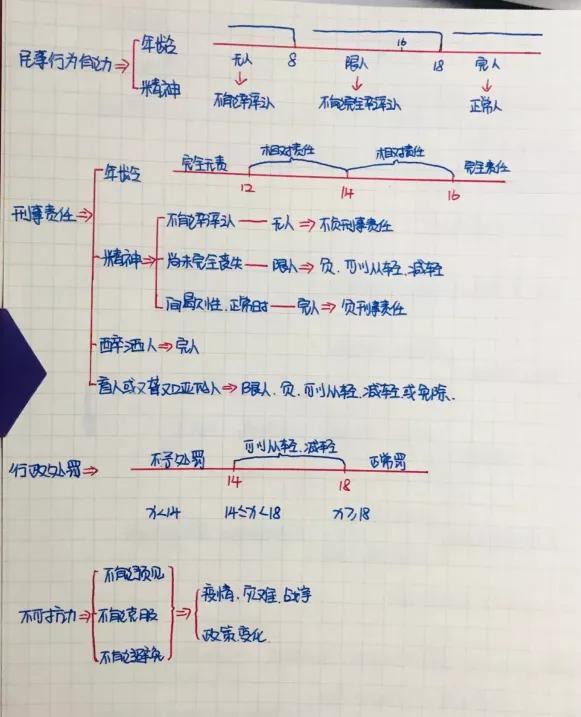 民事行为能力⇒
年龄
16
无人 8 限人 18 完人
精神
不能辨认 不能完全辨认 正常人
刑事责任⇒
年龄
完全无责 相对责任 相对责任 完全责任
12 14 16
精神⇒
不能辨认——无人⇒不负刑事责任
尚未完全丧失——限人⇒负.可以从轻.减轻
间歇性.正常时——完人⇒负刑事责任
醉酒人⇒完人
盲人或又聋又哑的人⇒限人.负.可以从轻.减轻或免除.
行政处罚⇒
不予处罚 可以从轻.减轻 正常罚
14 18
x<14 14≤x<18 x≥18
不可抗力⇒
不能预见
不能克服
不能避免
疫情.灾难.战争
政策变化